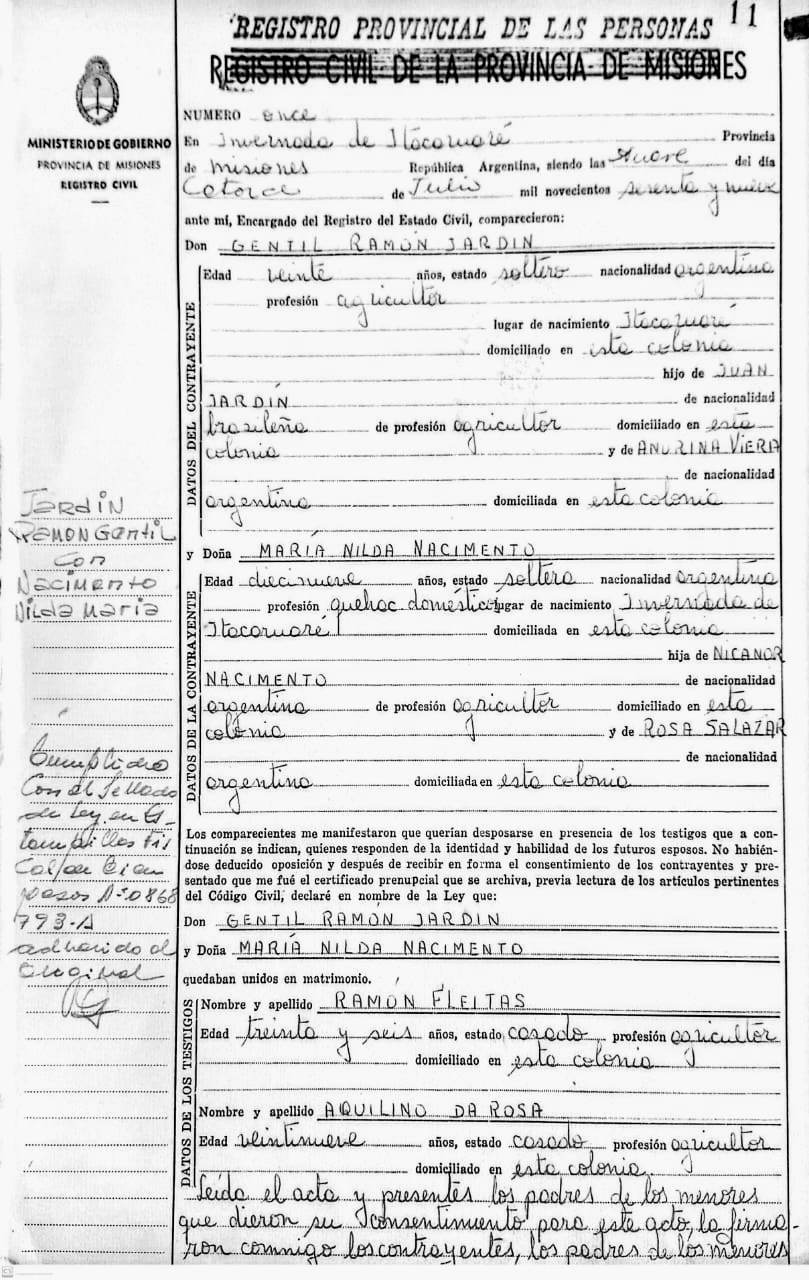 11
REGISTRO PROVINCIAL DE LAS PERSONAS
REGISTRO CIVIL DE LA PROVINCIA DE MISIONES
MINISTERIO DE GOBIERNO
PROVINCIA DE MISIONES
REGISTRO CIVIL
NUMERO once
En Invernada de Itacaruaré Provincia
de Misiones República Argentina, siendo las nueve del día
Catorce de Julio mil novecientos setenta y nueve
ante mí, Encargado del Registro del Estado Civil, comparecieron:
Don GENTIL RAMÓN JARDIN
DATOS DEL CONTRAYENTE
Edad veinte años, estado soltero nacionalidad argentina
profesión agricultor
lugar de nacimiento Itacaruaré
domiciliado en esta colonia
hijo de JUAN
JARDÍN de nacionalidad
brasileña de profesión agricultor domiciliado en esta
colonia y de ANDRINA VIERA
de nacionalidad
argentina domiciliada en esta colonia
Jardin
Ramon Gentil
con
Nacimento
Nilda Maria
y Doña MARÍA NILDA NACIMENTO
DATOS DE LA CONTRAYENTE
Edad diecinueve años, estado soltera nacionalidad argentina
profesión quehac. domésticos lugar de nacimiento Invernada de
Itacaruaré domiciliada en esta colonia
hija de NICANOR
NACIMENTO de nacionalidad
argentina de profesión agricultor domiciliado en esta
colonia y de ROSA SALAZAR
de nacionalidad
argentina domiciliada en esta colonia
Cumplido
Con el Sellado
de Ley en Es-
tampillas Fis
Cal de Cien
pesos Nº 0868
793-A
adherido al
original
Los comparecientes me manifestaron que querían desposarse en presencia de los testigos que a con-
tinuación se indican, quienes responden de la identidad y habilidad de los futuros esposos. No habién-
dose deducido oposición y después de recibir en forma el consentimiento de los contrayentes y pre-
sentado que me fué el certificado prenupcial que se archiva, previa lectura de los artículos pertinentes
del Código Civil, declaré en nombre de la Ley que:
Don GENTIL RAMÓN JARDIN
y Doña MARÍA NILDA NACIMENTO
quedaban unidos en matrimonio.
DATOS DE LOS TESTIGOS
Nombre y apellido RAMÓN FLEITAS
Edad treinta y seis años, estado casado profesión agricultor
domiciliado en esta colonia
Nombre y apellido AQUILINO DA ROSA
Edad veintinueve años, estado casado profesión agricultor
domiciliado en esta colonia.
Leída el acta y presentes los padres de los menores
que dieron su consentimiento para este acto, la firma-
ron conmigo los contrayentes, los padres de los menores